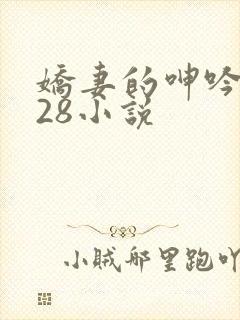 嬌妻的呻吟
28小説
小賊郍里跑吖